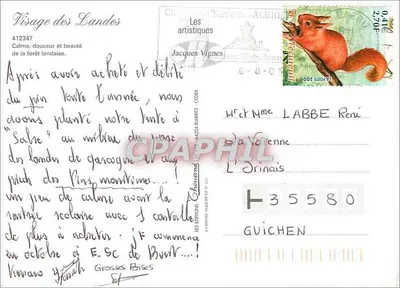 Visage des Landes
412347
Calme, douceur et beauté
de la forêt landaise.
Les
artistiques
Jacques Vignes
0,41€
2,70F
Après avoir acheté et débité
du pin toute l'année, nous
avons planté notre tente à
"Sabre" au milieu du parc
des landes de gascogne et aux
pieds des Pins maritimes...!
Un peu de calme avant la
rentrée scolaire avec 1 cartable
de plus à acheter. Je commence
en octobre à E.SC de
Grosses Bises
Mr et Mme LABBE René
La Varenne
L'Orinais
35580
GUICHEN
CPAPHIL